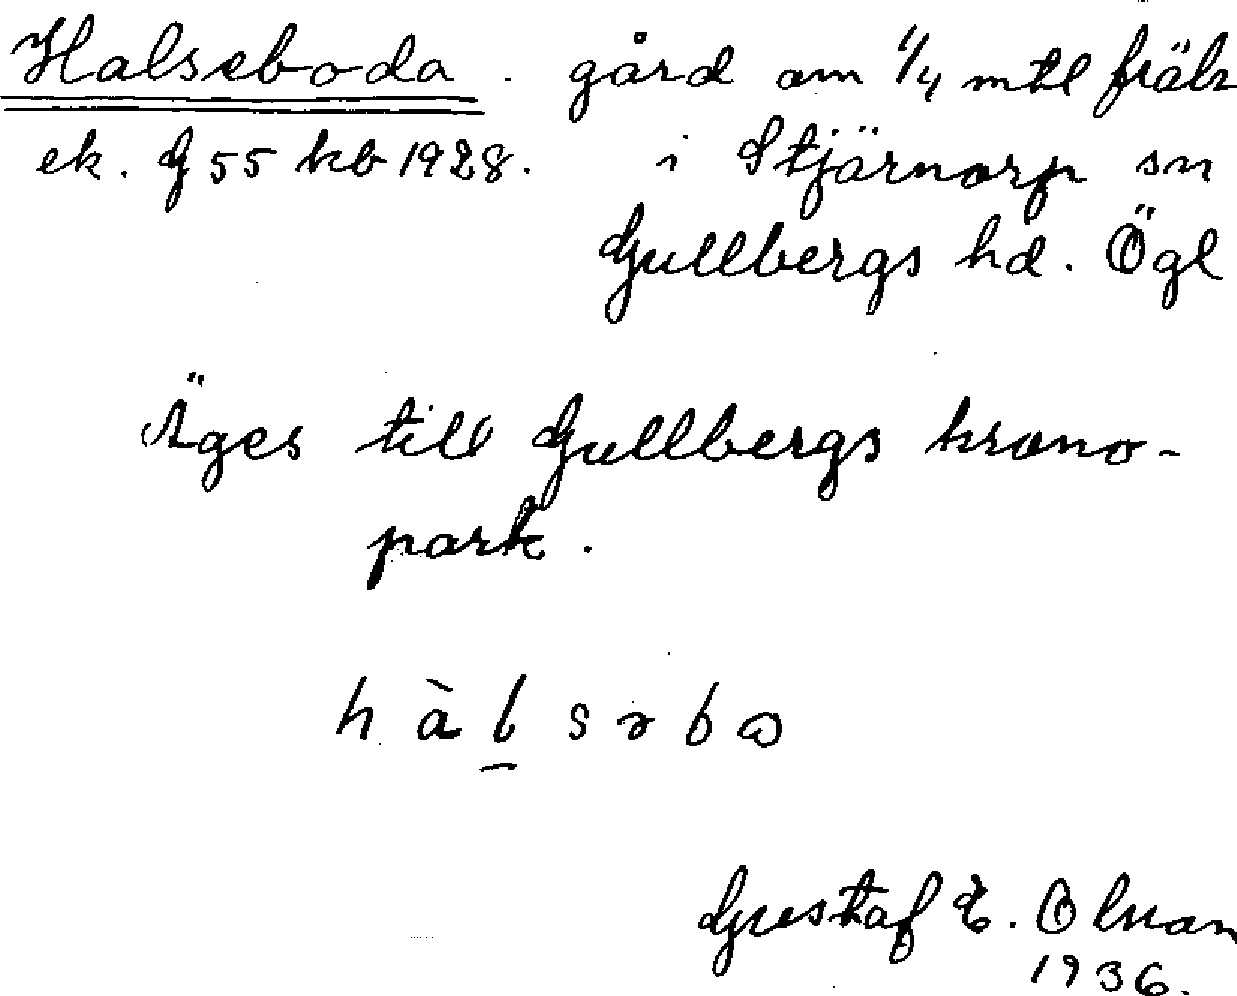 Halseboda. gård om 1/4 mtl frälse
ek. G 55 kb 1928. i Stjärnorp sn
Gullbergs hd. Ögl
Äges till Gullbergs krono-
park.
h à l s ə b ω
Gustaf E.
1936.